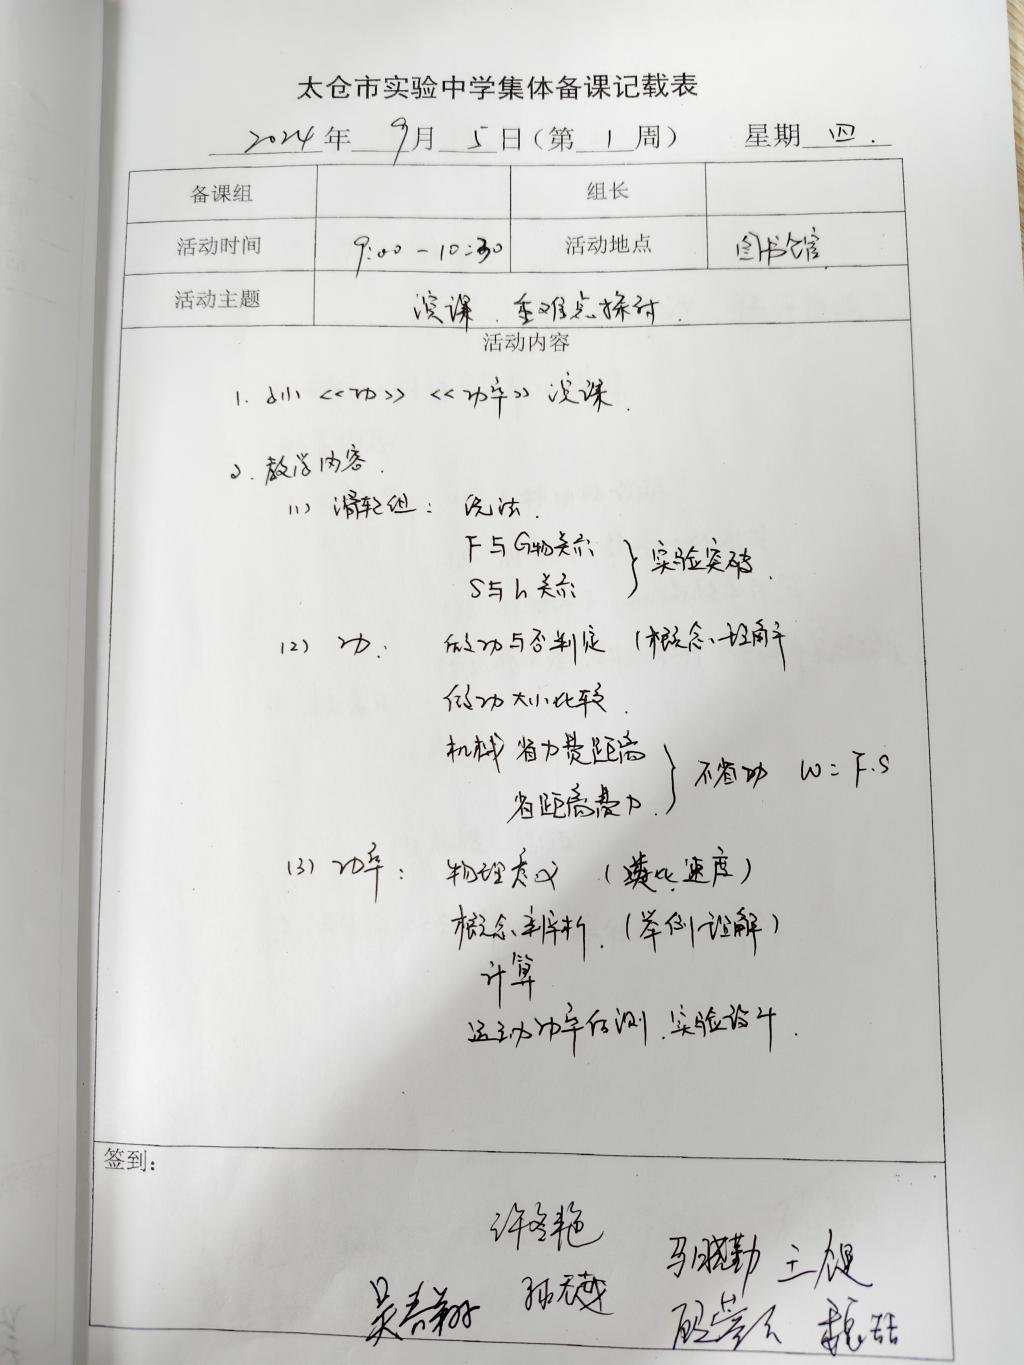 太仓市实验中学集体备课记载表
2024年 9月 5日（第 1 周） 星期 四.
备课组 组长
活动时间 9:00-10:30 活动地点 图书馆
活动主题 演课. 重难点探讨.
活动内容
1. <<功>> <<功率>> 演课.
2. 教学内容.
(1) 滑轮组: 绕法.
F与G物关系
S与h关系 } 实验突破.
(2) 功: 做功与否判定 (概念、理解
做功大小比较.
机械 省力费距离
省距离费力. } 不省功 W=F.S
(3) 功率: 物理意义 (类比速度)
概念辨析. (举例理解)
计算
运动功率估测.实验设计.
签到:
许冬艳
马晓勤
吴春翔